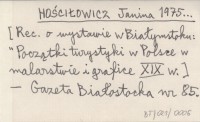 HOŚCIŁOWICZ Janina 1975...
[Rec. o wystawie w Białymstoku:
"Początki turystyki w Polsce w
malarstwie i grafice XIX w.]
– Gazeta Białostocka nr 85.